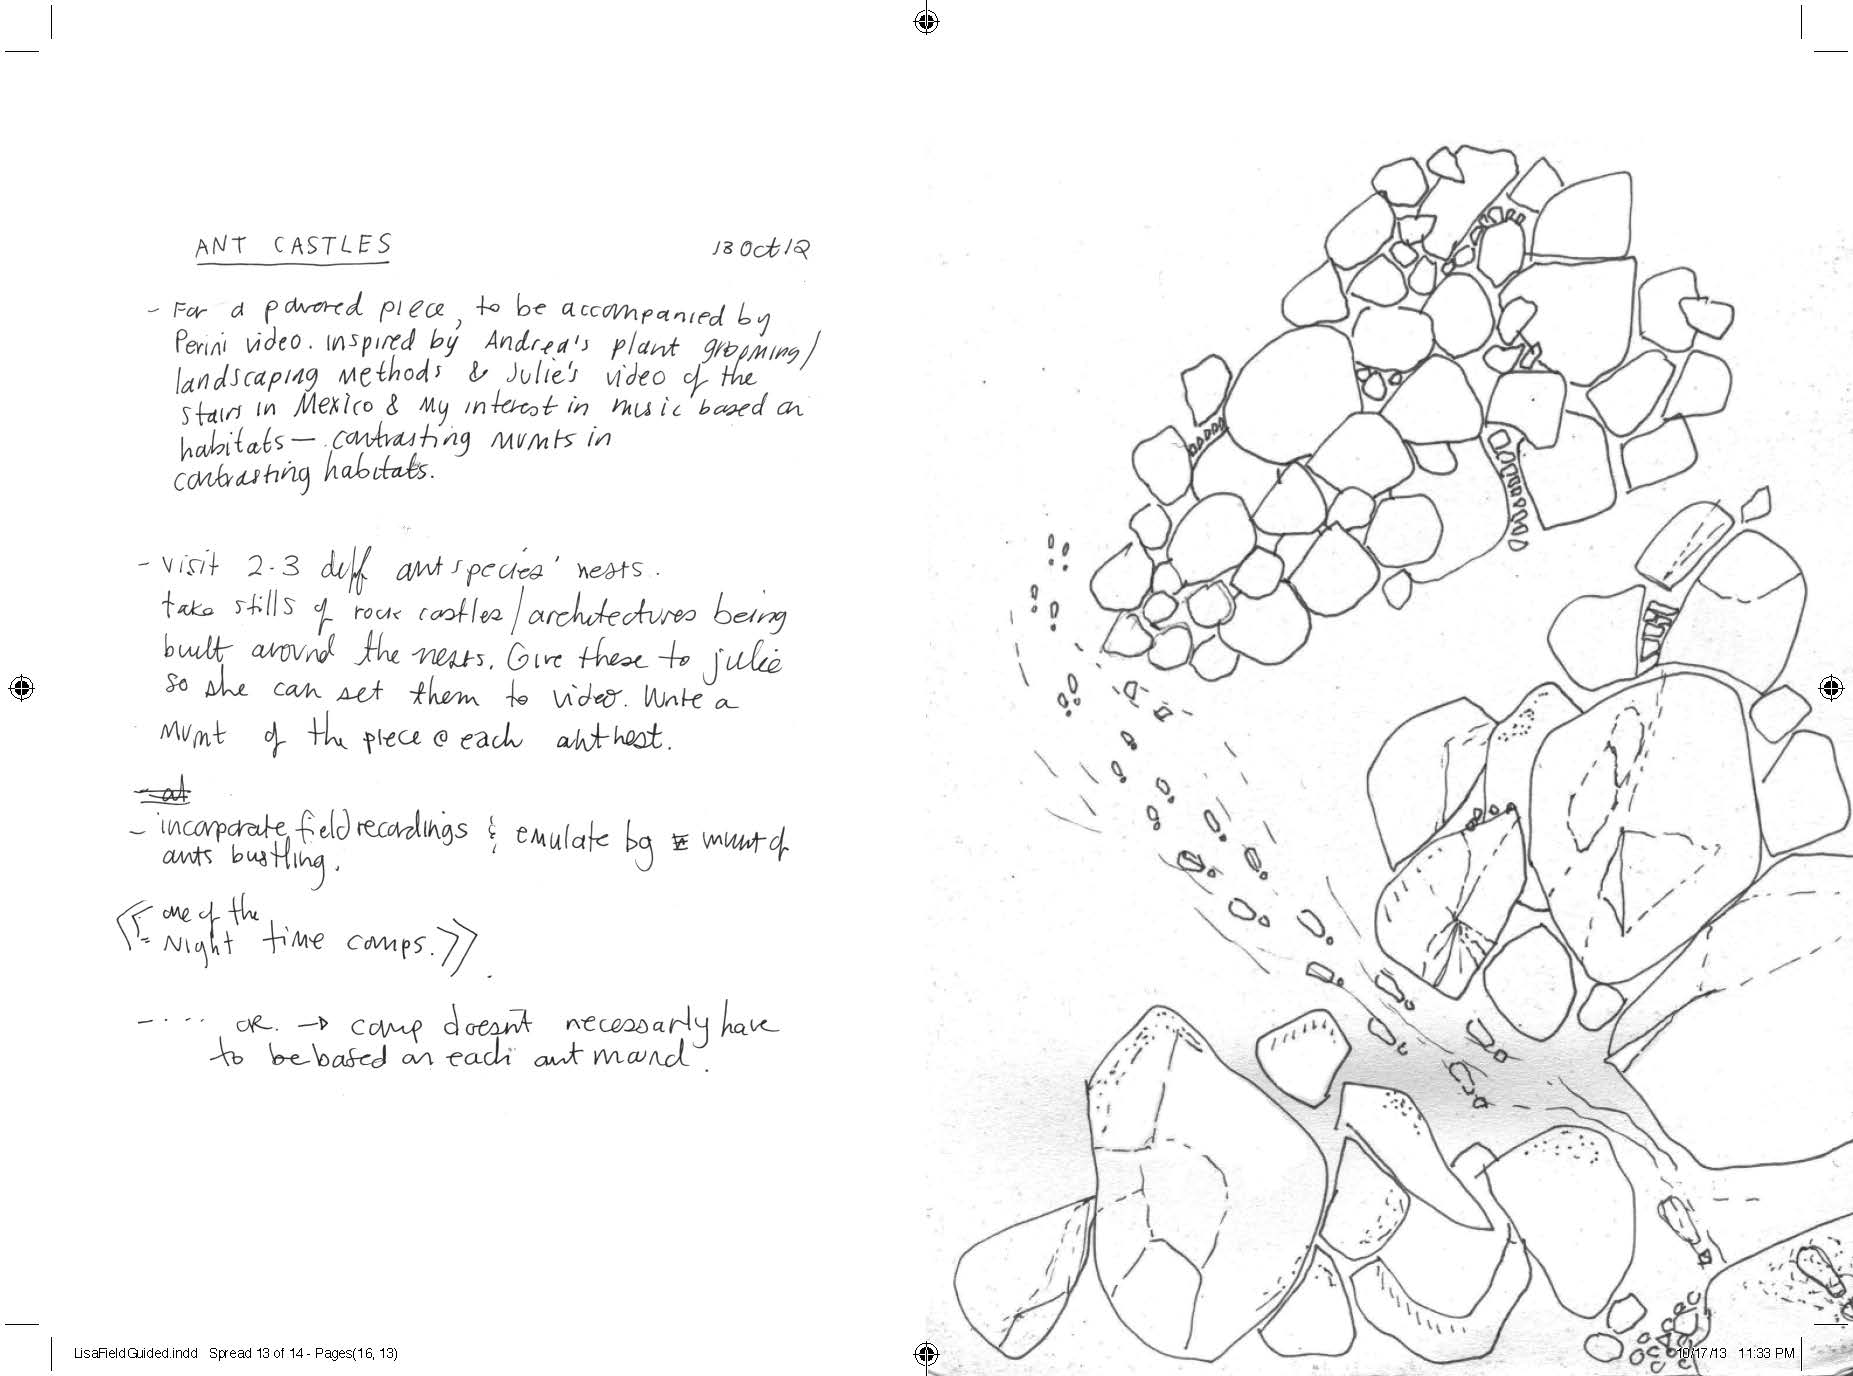 ANT CASTLES
13 Oct 12
- For a pavored piece, to be accompanied by
Perini video. inspired by Andrea's plant grooming/
landscaping methods & Julie's video of the
stairs in Mexico & my interest in music based on
habitats — contrasting mvmts in
contrasting habitats.
- visit 2-3 diff ant species' nests.
take stills of rock castles/architectures being
built around the nests. Give these to julie
so she can set them to video. Write a
mvmt of the piece @ each ant nest.
- incorporate field recordings & emulate bg mvmt of
ants bustling.
one of the
Night time comps.
-.... OR. → comp doesn't necessarly have
to be based on each ant mound.
LisaFieldGuided.indd Spread 13 of 14 - Pages(16, 13)
10/17/13 11:33 PM